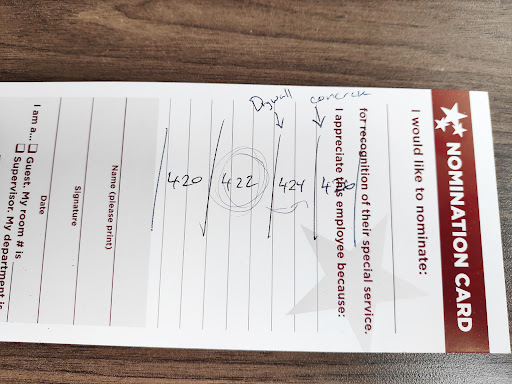 NOMINATION CARD
I would like to nominate:
for recognition of their special service.
I appreciate this employee because:
Drywall concrete
420 422 424
Name (please print)
Signature
Date
I am a... Guest. My room # is
Supervisor. My department is